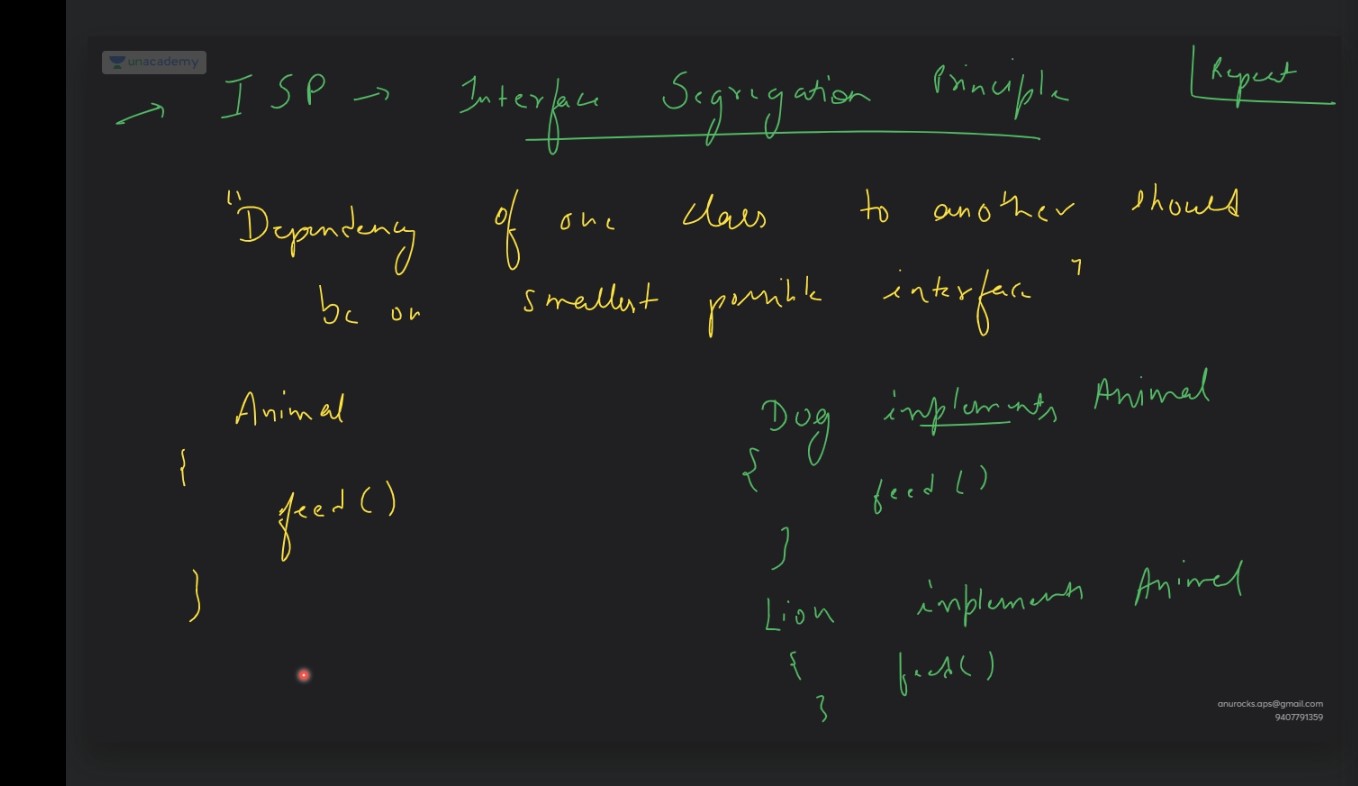 unacademy
→ ISP → Interface Segregation Principle
Repeat
"Dependency of one class to another should
be on smallest possible interface"
Animal
{
feed()
}
Dog implements Animal
{
feed()
}
Lion implements Animal
{ feed()
}
anurocks.aps@gmail.com
9407791359